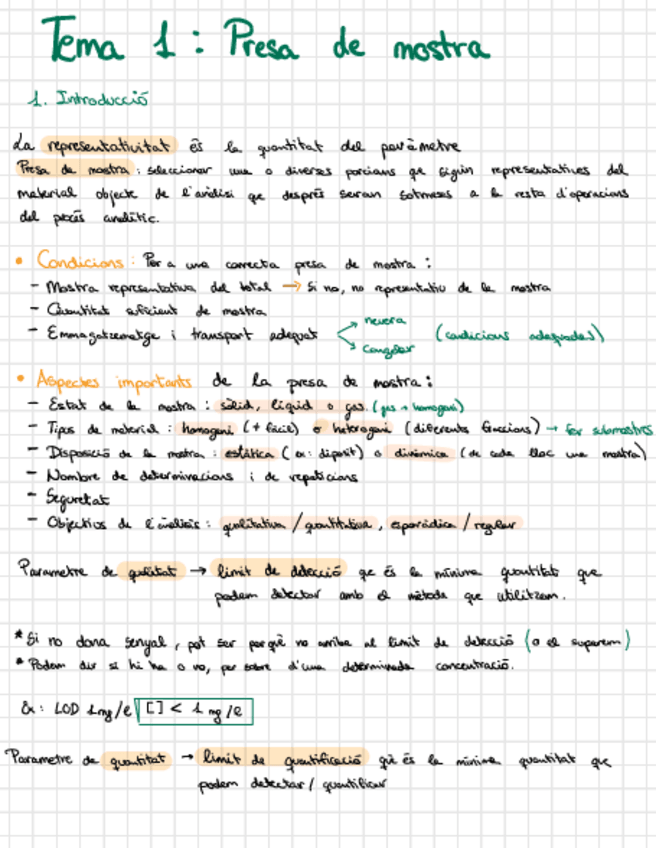 Tema 1: Presa de mostra
1. Introducció
La representativitat és la quantitat del paràmetre
Presa de mostra: seleccionar una o diverses porcions qe siguin representatives del
material objecte de l'anàlisi qe després seran sotmeses a la resta d'operacions
del procés analític.
• Condicions: Per a una correcta presa de mostra:
- Mostra representativa del total → Si no, no representatiu de la mostra
- Quantitat suficient de mostra
- Emmagatzematge i transport adequat
nevera
congelar
(condicions adequades)
• Aspectes importants de la presa de mostra:
- Estat de la mostra: sòlid, líquid o gas. (gas → homogeni)
- Tipus de material: homogeni (+ fàcil) o heterogeni (diferents fraccions) → fer submostres
- Disposició de la mostra: estàtica (ex: diposit) o dinàmica (de cada lloc una mostra)
- Nombre de determinacions i de repeticions
- Seguretat
- Objectius de l'anàlisis: qualitativa / quantitativa, esporàdica / regular
Parametre de qualitat → limit de detecció qe és la mínima quantitat que
podem detectar amb el mètode que utilitzem.
* Si no dona senyal, pot ser perquè no arriba al limit de detecció (o el superem)
* Podem dir si hi ha o no, per sobre d'una determinada concentració.
Ex: LOD 1mg/l [] < 1 mg/l
Parametre de quantitat → limit de quantificació què és la mínima quantitat que
podem detectar / quantificar